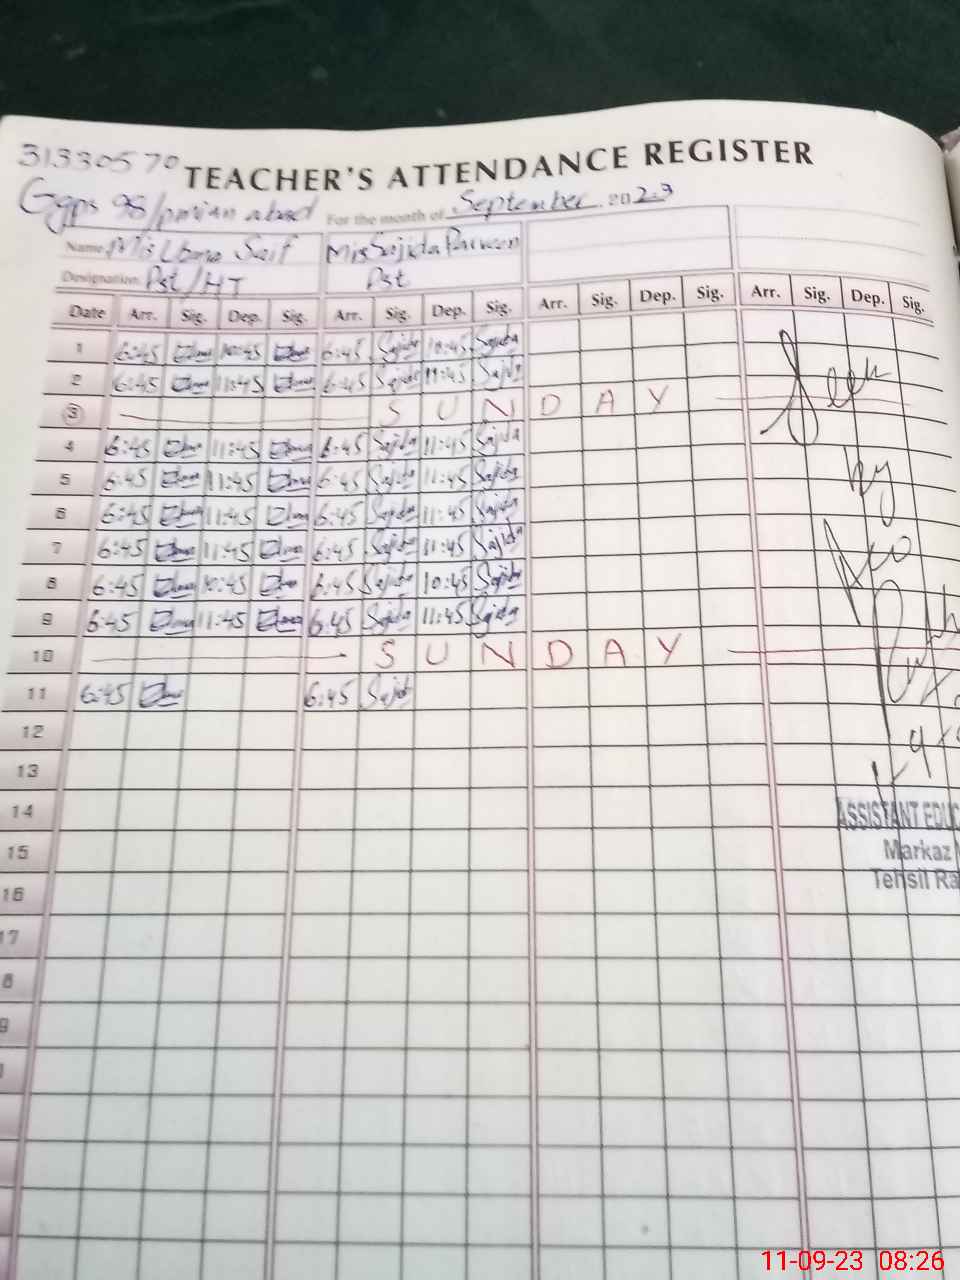 31330570 TEACHER'S ATTENDANCE REGISTER
Ggps 98/ For the month of September 2023
Name Mis Saif Mis Sajida Parveen
Designation Pst/HT Pst
Date Arr. Sig. Dep. Sig. Arr. Sig. Dep. Sig. Arr. Sig. Dep. Sig. Arr. Sig. Dep. Sig.
1 6:45 10:45 6:45 Sajida 10:45 Sajida
2 6:45 11:45 6:45 Sajida 11:45 Sajida
3 SUNDAY
4 6:45 11:45 6:45 Sajida 11:45 Sajida
5 6:45 11:45 6:45 Sajida 11:45 Sajida
6 6:45 11:45 6:45 Sajida 11:45 Sajida
7 6:45 11:45 6:45 Sajida 11:45 Sajida
8 6:45 10:45 6:45 Sajida 10:45 Sajida
9 6:45 11:45 6:45 Sajida 11:45 Sajida
10 SUNDAY
11 6:45 6:45 Sajida
12
13
14
15
16
17
8
9
Seen
by
AEO
ASSISTANT EDUC
Markaz
Tehsil Ra
11-09-23 08:26